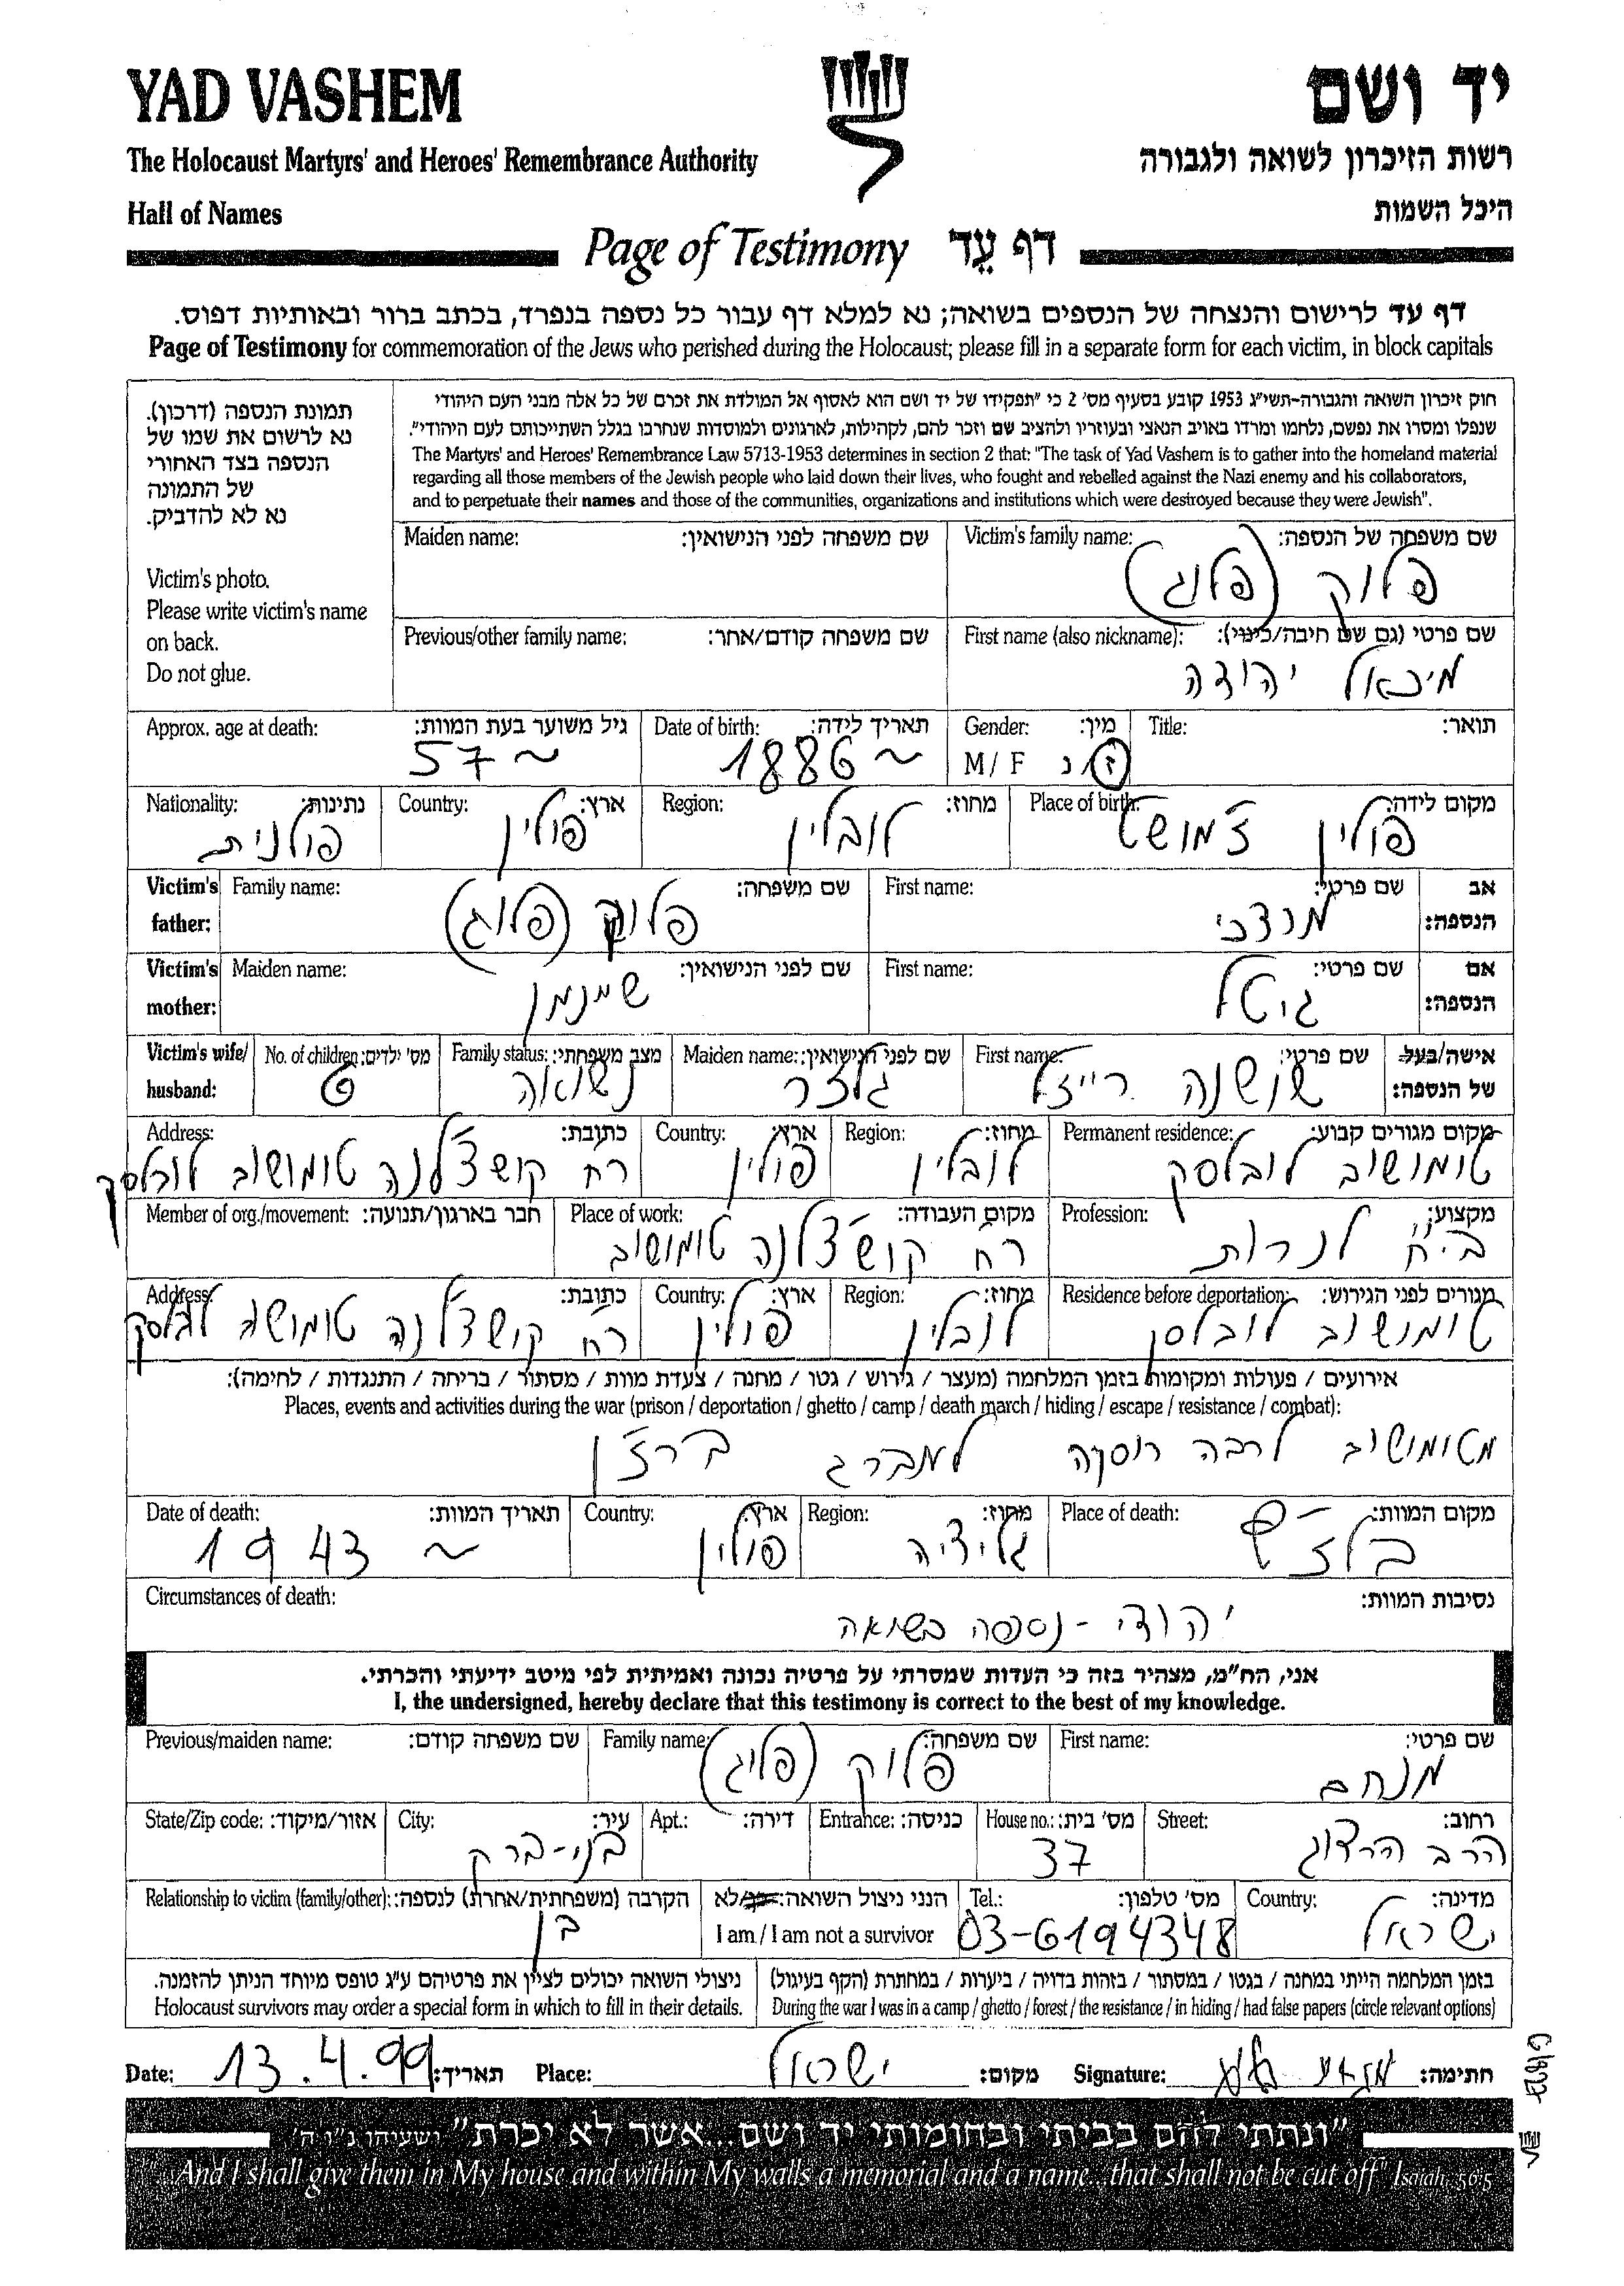 YAD VASHEM
יד ושם
The Holocaust Martyrs' and Heroes' Remembrance Authority
רשות הזיכרון לשואה ולגבורה
Hall of Names
היכל השמות
Page of Testimony דף עֵד
דף עד לרישום והנצחה של הנספים בשואה; נא למלא דף עבור כל נספה בנפרד, בכתב ברור ובאותיות דפוס.
Page of Testimony for commemoration of the Jews who perished during the Holocaust; please fill in a separate form for each victim, in block capitals
תמונת הנספה (דרכון).
נא לרשום את שמו של
הנספה בצד האחורי
של התמונה
נא לא להדביק.
Victim's photo.
Please write victim's name
on back.
Do not glue.
חוק זיכרון השואה והגבורה-תשי"ג 1953 קובע בסעיף מס' 2 כי "תפקידו של יד ושם הוא לאסוף אל המולדת את זכרם של כל אלה מבני העם היהודי
שנפלו ומסרו את נפשם, נלחמו ומרדו באויב הנאצי ובעוזריו ולהציב שם וזכר להם, לקהילות, לארגונים ולמוסדות שנחרבו בגלל השתייכותם לעם היהודי".
The Martyrs' and Heroes' Remembrance Law 5713-1953 determines in section 2 that: "The task of Yad Vashem is to gather into the homeland material
regarding all those members of the Jewish people who laid down their lives, who fought and rebelled against the Nazi enemy and his collaborators,
and to perpetuate their names and those of the communities, organizations and institutions which were destroyed because they were Jewish".
Victim's family name: שם משפחה של הנספה:
פלוק (פלוג)
Maiden name: שם משפחה לפני הנישואין:
First name (also nickname): שם פרטי (גם שם חיבה/כינוי):
מיכאל יהודה
Previous/other family name: שם משפחה קודם/אחר:
Title: תואר:
Gender: מין:
M/F ז/נ
Date of birth: תאריך לידה:
~ 1886
Approx. age at death: גיל משוער בעת המוות:
~ 57
Place of birth: מקום לידה:
פולין זמושט
Region: מחוז:
לובלין
Country: ארץ:
פולין
Nationality: נתינות:
פולנית
Victim's father: אב הנספה:
First name: שם פרטי:
מרדכי
Family name: שם משפחה:
פלוק (פלוג)
Victim's mother: אם הנספה:
First name: שם פרטי:
גיטל
Maiden name: שם לפני הנישואין:
שיינמן
Victim's wife/husband: אישה/בעל של הנספה:
First name: שם פרטי:
שושנה רייזל
Maiden name: שם לפני הנישואין:
גלזר
Family status: מצב משפחתי:
נשואה
No. of children: מס' ילדים:
6
Permanent residence: מקום מגורים קבוע:
טומושוב לובלסק
Region: מחוז:
לובלין
Country: ארץ:
פולין
Address: כתובת:
רח' קושצ'לנה טומושוב לובלסק
Profession: מקצוע:
בי"ח לנרות
Place of work: מקום העבודה:
רח' קושצ'לנה טומושוב
Member of org./movement: חבר בארגון/תנועה:
Residence before deportation: מגורים לפני הגירוש:
טומושוב לובלסק
Region: מחוז:
לובלין
Country: ארץ:
פולין
Address: כתובת:
רח' קושצ'לנה טומושוב לובלסק
אירועים / פעולות ומקומות בזמן המלחמה (מעצר / גירוש / גטו / מחנה / צעדת מוות / מסתור / בריחה / התנגדות / לחימה):
Places, events and activities during the war (prison / deportation / ghetto / camp / death march / hiding / escape / resistance / combat):
מטומושוב לרבה רוסקה למברג
Place of death: מקום המוות:
בלז'ץ
Region: מחוז:
גליציה
Country: ארץ:
פולין
Date of death: תאריך המוות:
~ 1943
Circumstances of death: נסיבות המוות:
יהודי - נספה בשואה
אני, הח"מ, מצהיר בזה כי העדות שמסרתי על פרטיה נכונה ואמיתית לפי מיטב ידיעתי והכרתי.
I, the undersigned, hereby declare that this testimony is correct to the best of my knowledge.
First name: שם פרטי:
מנחם
Family name: שם משפחה:
פלוק (פלוג)
Previous/maiden name: שם משפחה קודם:
Street: רחוב:
הרב הרצוג
House no.: מס' בית:
37
Entrance: כניסה:
Apt.: דירה:
City: עיר:
בני-ברק
State/Zip code: אזור/מיקוד:
Country: מדינה:
ישראל
Tel.: מס' טלפון:
03-6194348
הנני ניצול השואה: כן/לא
I am / I am not a survivor
Relationship to victim (family/other): הקרבה (משפחתית/אחרת) לנספה:
בן
בזמן המלחמה הייתי במחנה / בגטו / במסתור / בזהות בדויה / ביערות / במחתרת (הקף בעיגול)
During the war I was in a camp / ghetto / forest / the resistance / in hiding / had false papers (circle relevant options)
ניצולי השואה יכולים לציין את פרטיהם ע"ג טופס מיוחד הניתן להזמנה.
Holocaust survivors may order a special form in which to fill in their details.
Date: 13.4.99 תאריך: Place: ישראל מקום: Signature: חתימה:
"ונתתי להם בביתי ובחומותי יד ושם...אשר לא יכרת" ישעיהו נ"ו ה'
"And I shall give them in My house and within My walls a memorial and a name...that shall not be cut off" Isaiah, 56:5